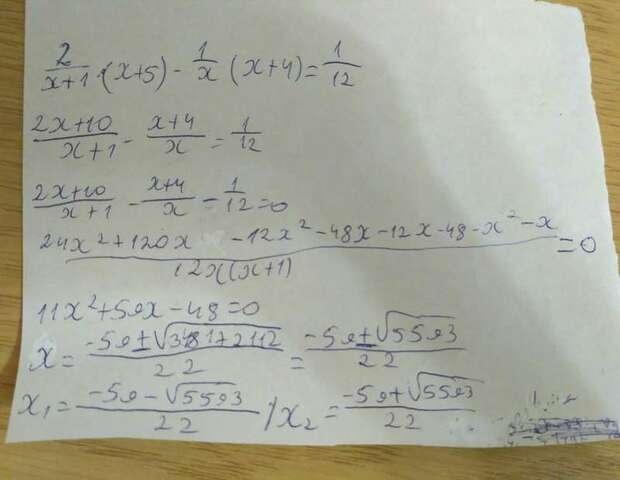 2/(x+1) · (x+5) - 1/x (x+4) = 1/12
(2x+10)/(x+1) - (x+4)/x = 1/12
(2x+10)/(x+1) - (x+4)/x - 1/12 = 0
(24x² + 120x - 12x² - 48x - 12x - 48 - x² - x)/(12x(x+1)) = 0
11x² + 59x - 48 = 0
x = (-59 ± √(3481 + 2112))/22 = (-59 ± √5593)/22
x₁ = (-59 - √5593)/22 / x₂ = (-59 + √5593)/22